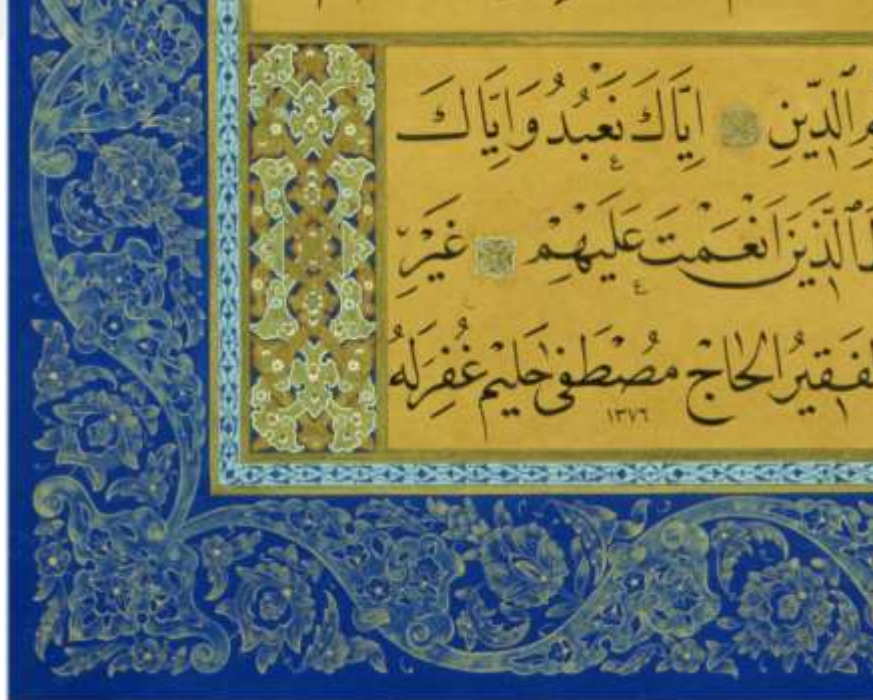 الدِّينِ اِيَّاكَ نَعْبُدُ وَاِيَّاكَ
الَّذِينَ اَنْعَمْتَ عَلَيْهِمْ غَيْرِ
الفَقِيرُ الحَاجّ مُصْطَفٰى حَلِيم غُفِرَ لَهُ
١٣٧٦